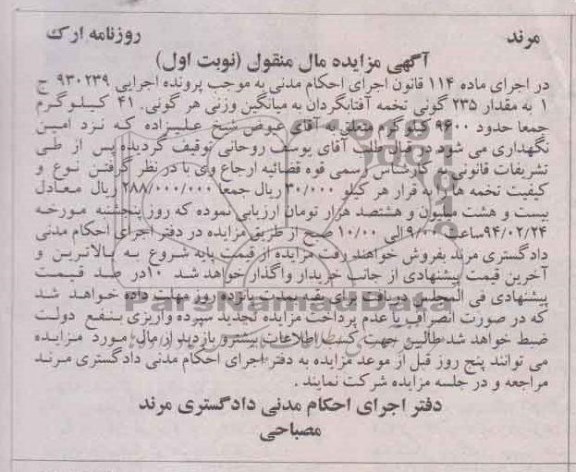 مرند
روزنامه ارک
آگهی مزایده مال منقول (نوبت اول)
در اجرای ماده ۱۱۴ قانون اجرای احکام مدنی به موجب پرونده اجرایی ۹۳۰۲۳۹ ج
۱ به مقدار ۲۳۵ گونی تخمه آفتابگردان به میانگین وزنی هر گونی. ۴۱ کیلوگرم
جمعا حدود ۹۶۰۰ کیلوگرم متعلق به آقای عیوض شیخ علیزاده که نزد امین
نگهداری می شود در قبال طلب آقای یوسف روحانی توقیف گردیده پس از طی
تشریفات قانونی به کارشناس رسمی قوه قضائیه ارجاع وی با در نظر گرفتن نوع و
کیفیت تخمه ها را به قرار هر کیلو ۳۰/۰۰۰ ریال جمعا ۲۸۸/۰۰۰/۰۰۰ ریال معادل
بیست و هشت میلیون و هشتصد هزار تومان ارزیابی نموده که روز پنجشنبه مورخه
۹۴/۰۲/۲۴ساعت ۹/۰۰ الی ۱۰/۰۰ صبح از طریق مزایده در دفتر اجرای احکام مدنی
دادگستری مرند بفروش خواهند رفت مزایده از قیمت پایه شروع به بالاترین و
آخرین قیمت پیشنهادی از جانب خریدار واگذار خواهد شد ۱۰در صد قیمت
پیشنهادی فی المجلس دریافت برای بقیه بمدت پانزده روز مهلت داده خواهد شد
که در صورت انصراف یا عدم پرداخت مزایده تجدید سپرده واریزی بنفع دولت
ضبط خواهد شد طالبین جهت کسب اطلاعات بیشتر و بازدید از مال مورد مزایده
می توانند پنج روز قبل از موعد مزایده به دفتر اجرای احکام مدنی دادگستری مرند
مراجعه و در جلسه مزایده شرکت نمایند .
دفتر اجرای احکام مدنی دادگستری مرند
مصباحی
ParsNamadData